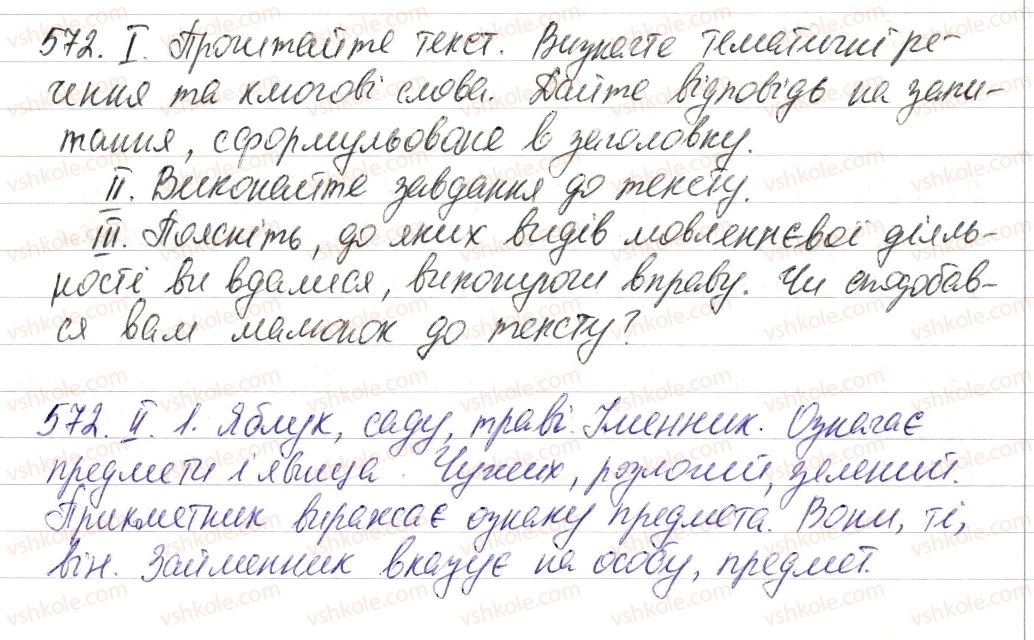 572. І. Прочитайте текст. Визначте тематичні ре-
чення та ключові слова. Дайте відповідь на запи-
тання, сформульоване в заголовку.
ІІ. Виконайте завдання до тексту.
ІІІ. Поясніть, до яких видів мовленнєвої діяль-
ності ви вдалися, виконуючи вправу. Чи сподобав-
ся вам малюнок до тексту?
572. ІІ. 1. Яблук, саду, траві. Іменник. Означає
предмети і явища. Чужих, розлогий, зелений.
Прикметник виражає ознаку предмета. Вони, ті,
він. Займенник вказує на особу, предмет.